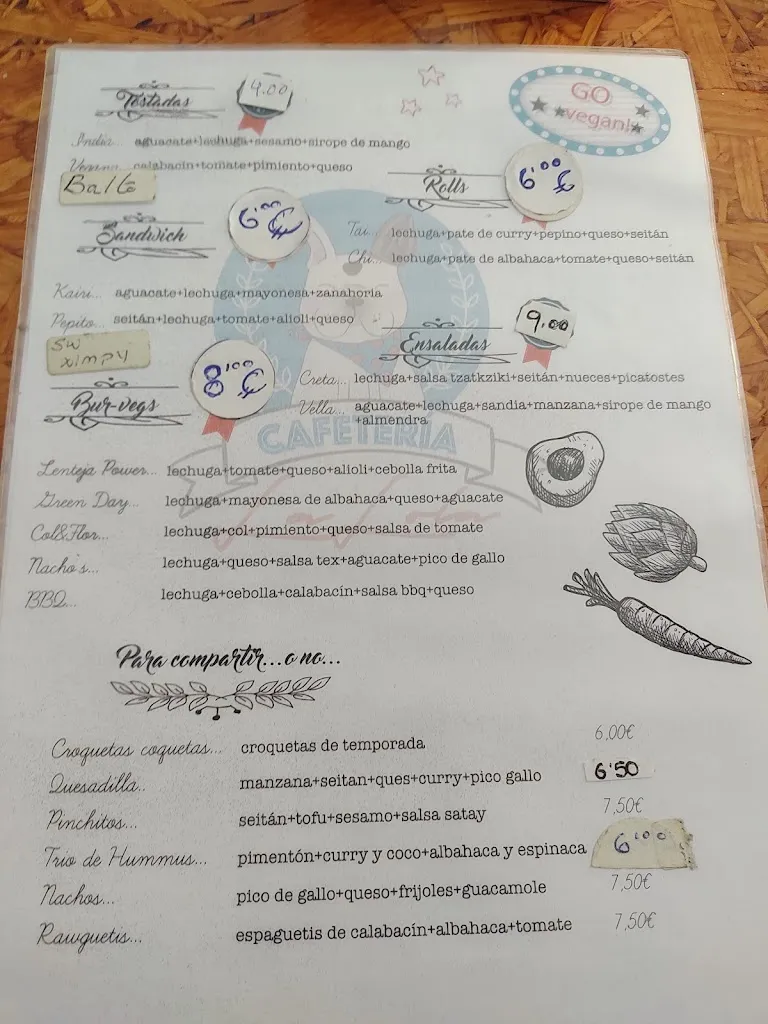 Tostadas
4.00
GO
vegan!
India... aguacate+lechuga+sesamo+sirope de mango
calabacín+tomate+pimiento+queso
Balto
Rolls
6'00 €
Sandwich
6'00 €
Tai... lechuga+pate de curry+pepino+queso+seitán
Chi... lechuga+pate de albahaca+tomate+queso+seitán
Kairi... aguacate+lechuga+mayonesa+zanahoria
Pepito... seitán+lechuga+tomate+alioli+queso
SW
ximpy
Ensaladas
9.00
Creta... lechuga+salsa tzatkziki+seitán+nueces+picatostes
Vella... aguacate+lechuga+sandia+manzana+sirope de mango
+almendra
Bur-vegs
8'00 €
CAFETERIA
Lenteja Power... lechuga+tomate+queso+alioli+cebolla frita
Green Day... lechuga+mayonesa de albahaca+queso+aguacate
Col&Flor... lechuga+col+pimiento+queso+salsa de tomate
Nacho's... lechuga+queso+salsa tex+aguacate+pico de gallo
BBQ... lechuga+cebolla+calabacín+salsa bbq+queso
Para compartir...o no...
Croquetas coquetas... croquetas de temporada 6,00€
Quesadilla.. manzana+seitan+ques+curry+pico gallo 6'50
Pinchitos... seitán+tofu+sesamo+salsa satay 7,50€
Trio de Hummus... pimentón+curry y coco+albahaca y espinaca 6'00
Nachos... pico de gallo+queso+frijoles+guacamole 7,50€
Rawguetis... espaguetis de calabacín+albahaca+tomate 7,50€